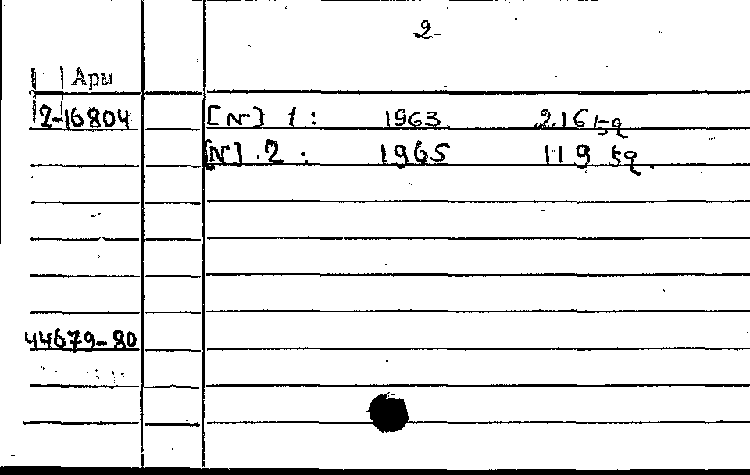 2
Apu
2-16804 [N] 1: 1963 216 sq
[N].2: 1965 119 sq.
44679-80